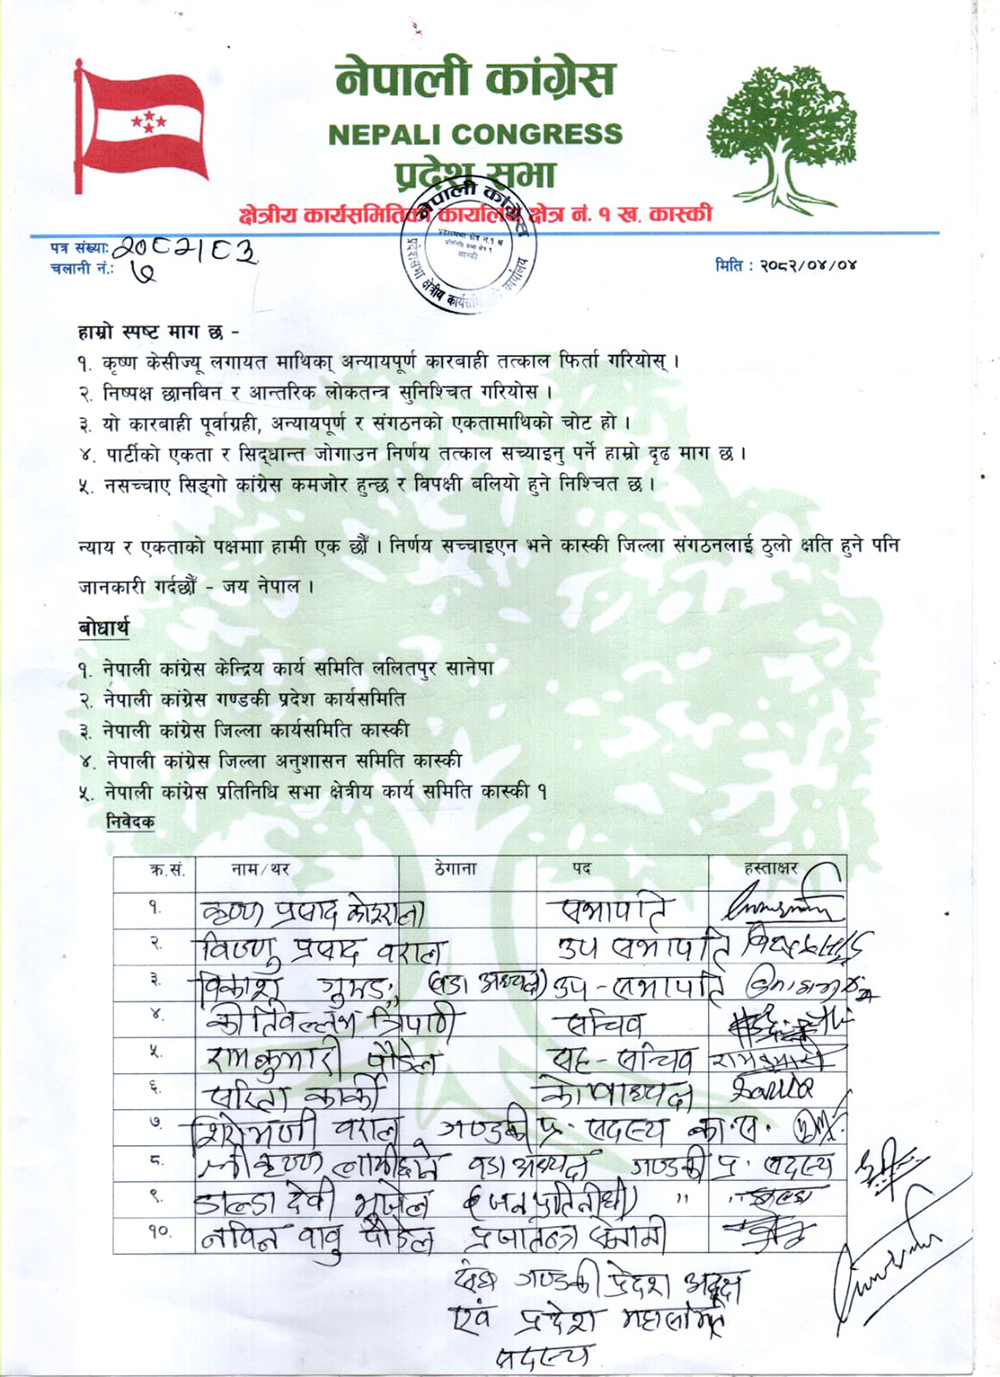 नेपाली कांग्रेस
NEPALI CONGRESS
प्रदेश सभा
क्षेत्रीय कार्यसमितिको कार्यालय क्षेत्र नं. १ ख, कास्की
पत्र संख्याः २०८२/८३
चलानी नं.: ७
मिति : २०८२/०४/०४
नेपाली कांग्रेस
प्रदेशसभा क्षेत्रीय कार्यसमिति कार्यालय
हाम्रो स्पष्ट माग छ -
१. कृष्ण केसीज्यू लगायत माथिका् अन्यायपूर्ण कारबाही तत्काल फिर्ता गरियोस् ।
२. निष्पक्ष छानबिन र आन्तरिक लोकतन्त्र सुनिश्चित गरियोस ।
३. यो कारबाही पूर्वाग्रही, अन्यायपूर्ण र संगठनको एकतामाथिको चोट हो ।
४. पार्टीको एकता र सिद्धान्त जोगाउन निर्णय तत्काल सच्याइनु पर्ने हाम्रो दृढ माग छ ।
५. नसच्चाए सिङ्गो कांग्रेस कमजोर हुन्छ र विपक्षी बलियो हुने निश्चित छ ।
न्याय र एकताको पक्षमाा हामी एक छौँ । निर्णय सच्चाइएन भने कास्की जिल्ला संगठनलाई ठुलो क्षति हुने पनि
जानकारी गर्दछौँ - जय नेपाल ।
बोधार्थ
१. नेपाली कांग्रेस केन्द्रिय कार्य समिति ललितपुर सानेपा
२. नेपाली कांग्रेस गण्डकी प्रदेश कार्यसमिति
३. नेपाली कांग्रेस जिल्ला कार्यसमिति कास्की
४. नेपाली कांग्रेस जिल्ला अनुशासन समिति कास्की
५. नेपाली कांग्रेस प्रतिनिधि सभा क्षेत्रीय कार्य समिति कास्की १
निवेदक
क्र.सं. नाम/थर ठेगाना पद हस्ताक्षर
१. कृष्ण प्रसाद कोइराला सभापति
२. विष्णु प्रसाद वराल उप सभापति
३. विकाश गुरुङ (वडा अध्यक्ष) उप-सभापति
४. कीर्तिवल्लभ त्रिपाठी सचिव
५. रामकुमारी पौडेल सह-सचिव रामकुमारी
६. सरिता कार्की कोषाध्यक्ष
७. शिरोमणी वराल गण्डकी प्र. सदस्य का.स.
८. श्रीकृष्ण लामीछाने वडा अध्यक्ष गण्डकी प्र. सदस्य
९. डल्डा देवी भुजेल (जनप्रतिनीधी) "
१०. नविन वावु पौडेल प्रजातन्त्र सेनानी
संघ गण्डकी प्रदेश अध्यक्ष
एवं प्रदेश महासमिति
सदस्य